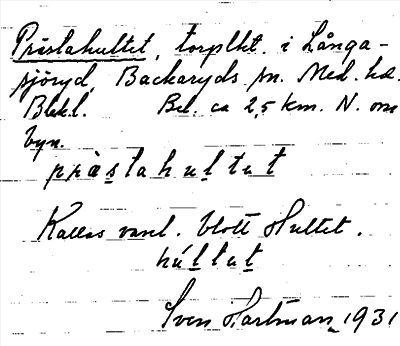 Prästahultet, torplht. i Långa-
sjöryd, Backaryds sn. Med. hd.
Blekl. Bel. ca 2,5 km. N. om
byn.
pràstahultut
Kallas vanl. blott Hultet.
húltut
Sven Hartman 1931